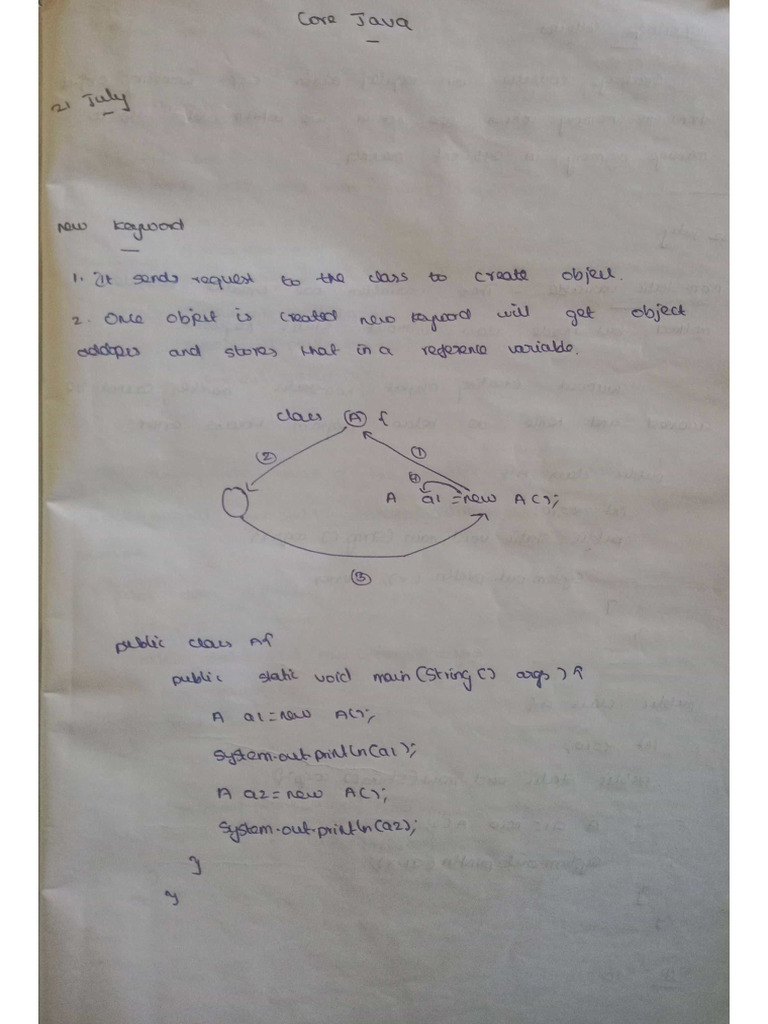 Core Java
21 July
new keyword
1. It sends request to the class to create object.
2. Once object is created new keyword will get object
address and stores that in a reference variable.
class A {
2
1
4
A a1 = new A();
3
public class A{
public static void main(String[] args){
A a1 = new A();
System.out.println(a1);
A a2 = new A();
System.out.println(a2);
}
}